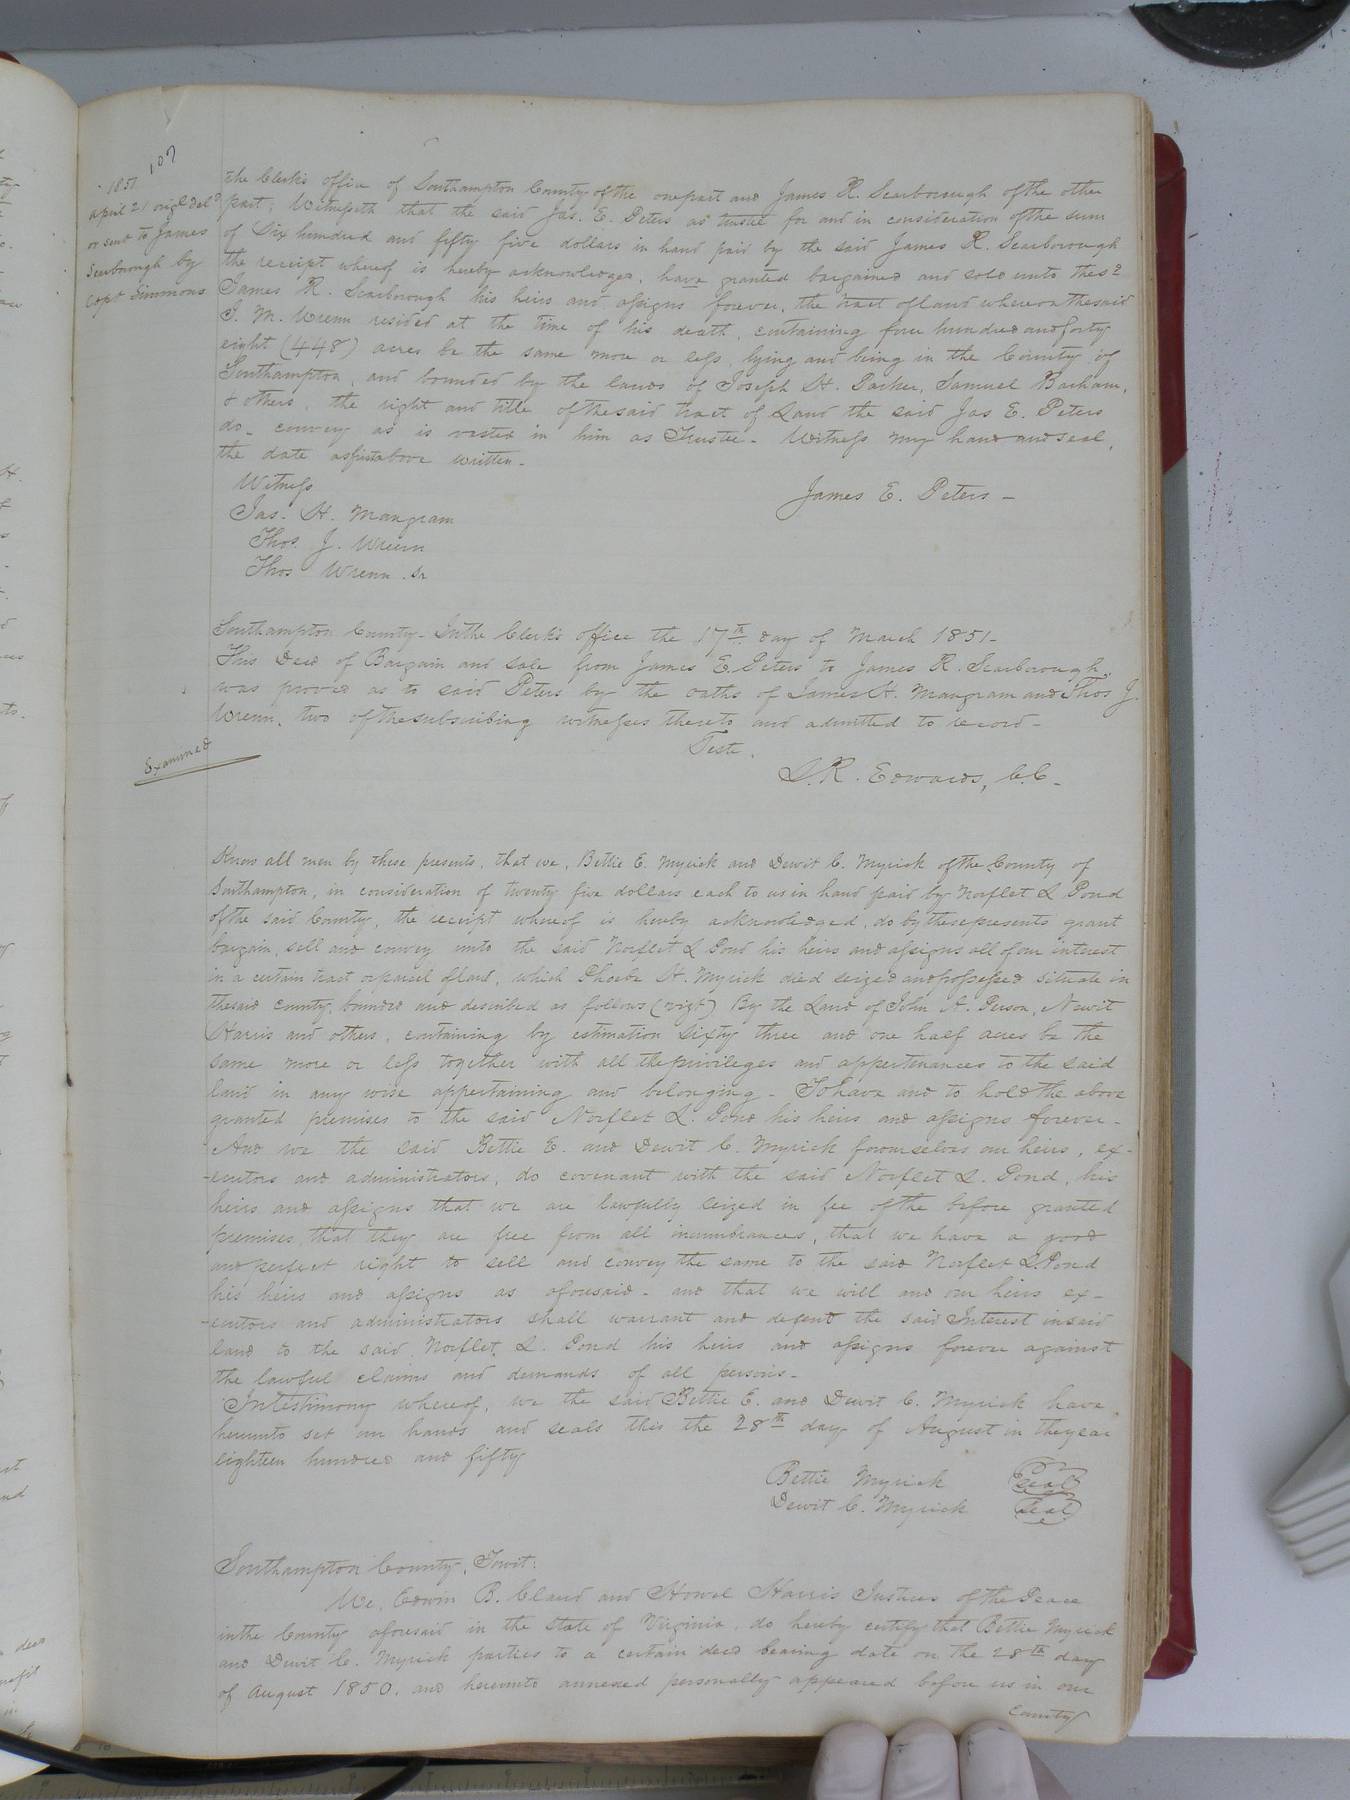 107
1851
april 21 origl deld
or sent to James
Scarborough by
Capt Simmons
the Clerk's office of Southampton County of the one part and James R. Scarborough of the other
part; Witnesseth that the said Jas. E. Peters as trustee for and in consideration of the sum
of Six hundred and fifty five dollars in hand paid by the said James R. Scarborough
the receipt whereof is hereby acknowledged, have granted bargained and sold unto the sd
James R. Scarborough his heirs and assigns forever, the tract of land whereon the said
J. M. Wrenn resided at the time of his death, containing four hundred and forty
eight (448) acres be the same more or less, lying and being in the County of
Southampton, and bounded by the lands of Joseph H. Parker, Samuel Barham,
& others, the right and title of the said tract of Land the said Jas E. Peters
do- convey as is vested in him as Trustee- Witness my hand and seal,
the date as first above written-
Witness
James E. Peters-
Jas. H. Mangram
Thos. J. Wrenn
Thos Wrenn Sr
Southampton County- In the Clerk's office the 17th day of March 1851-
This Deed of Bargain and sale from James E. Peters to James R. Scarborough,
was proved as to said Peters by the oaths of James H. Mangram and Thos J.
Wrenn, two of the subscribing witnesses thereto and admitted to record-
Teste.
Examined
L. R. Edwards, C.C-
Know all men by these presents, that we, Bettie E. Myrick and Dewit C. Myrick of the County of
Southampton, in consideration of twenty five dollars each to us in hand paid by Norflet L Pond
of the said County, the receipt whereof is hereby acknowledged, do by these presents grant
bargain, sell and convey unto the said Norflet L Pond his heirs and assigns all of our interest
in a certain tract or parcel of land, which Phoebe H. Myrick died seized and possessed situate in
the said county, bounded and described as follows (vizt) By the Land of John A. Person, Newit
Harris and others, containing by estimation sixty three and one half acres be the
same more or less together with all the privileges and appertenances to the said
land in any wise appertaining and belonging- To have and to hold the above
granted premises to the said Norflet L. Pond his heirs and assigns forever-
And we the said Bettie E. and Dewit C. Myrick for ourselves our heirs, ex-
-ecutors and administrators, do covenant with the said Norflet L. Pond, his
heirs and assigns that we are lawfully seized in fee of the before granted
premises, that they are free from all incumbrances, that we have a good
and perfect right to sell and convey the same to the said Norflet L. Pond
his heirs and assigns as aforesaid- and that we will and our heirs ex-
-ecutors and administrators shall warrant and defend the said Interest in said
land to the said Norflet L. Pond his heirs and assigns forever against
the lawful claims and demands of all persons-
In testimony whereof, we the said Bettie E. and Dewit C. Myrick have
hereunto set our hands and seals this the 28th day of August in the year
eighteen hundred and fifty
Bettie Myrick Seal
Dewit C. Myrick Seal
Southampton County, Towit:
We, Edwin B. Claud and Howel Harris Justices of the Peace
in the County aforesaid in the State of Virginia, do hereby certify that Bettie Myrick
and Dewit C. Myrick parties to a certain deed bearing date on the 28th day
of August 1850, and hereunto annexed personally appeared before us in our
County